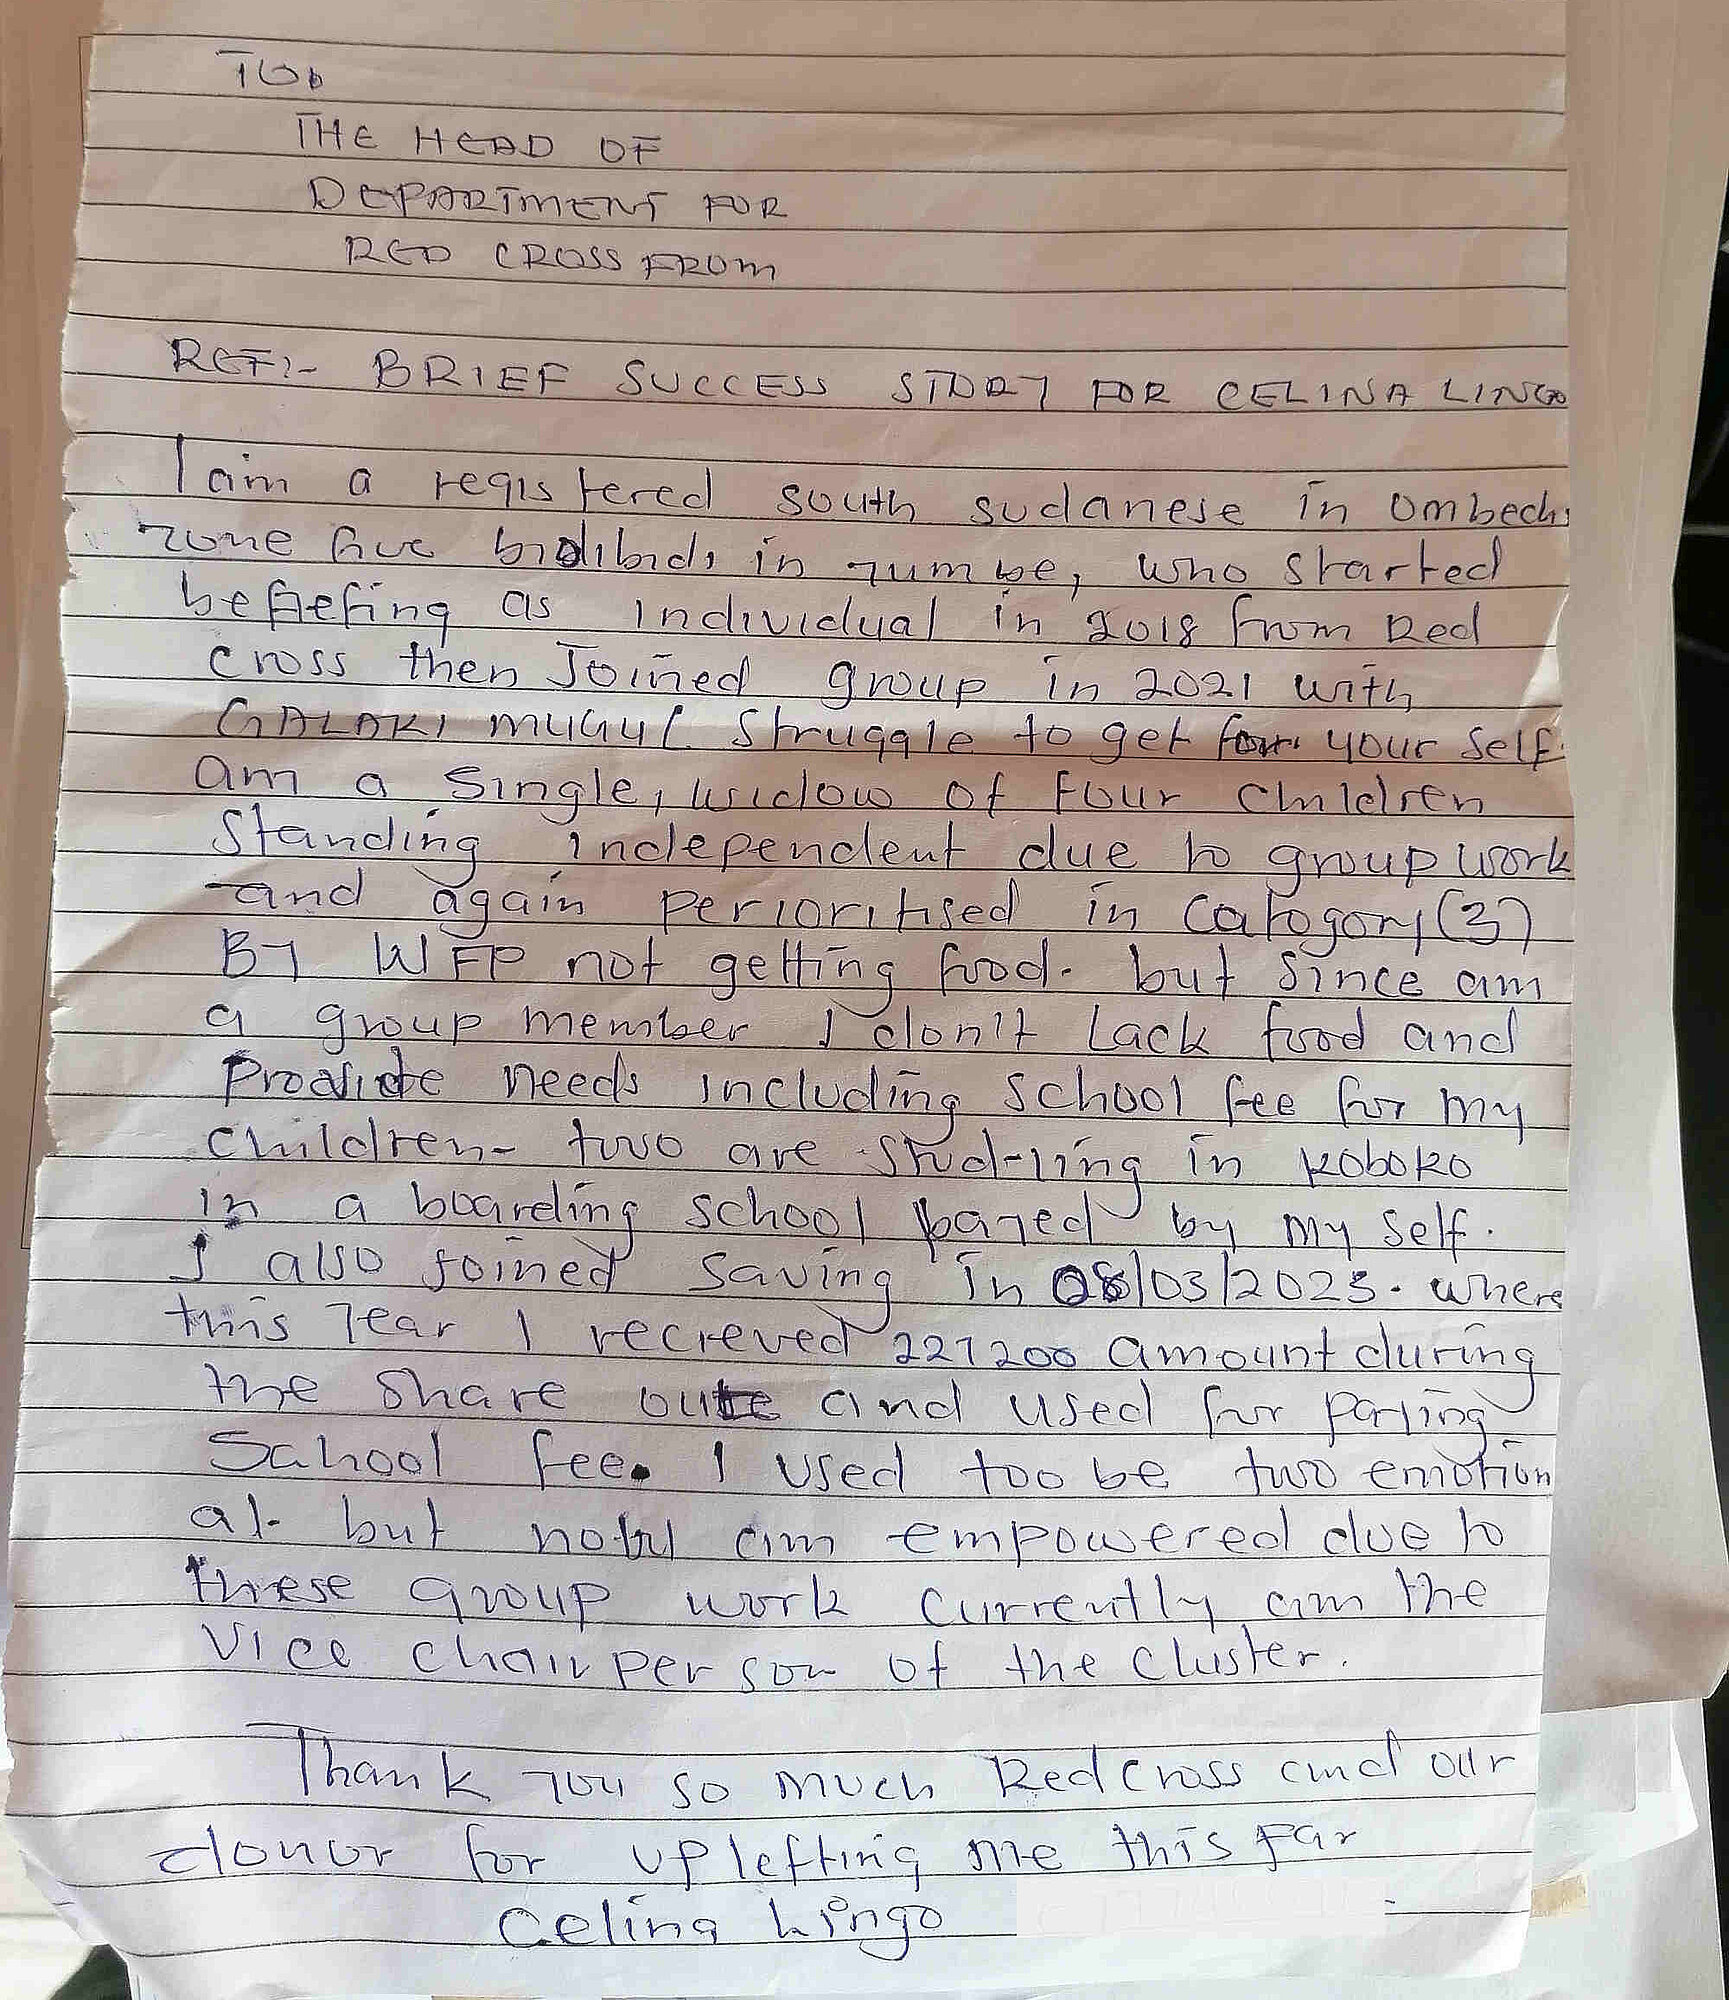 TO,
THE HEAD OF
DEPARTMENT FOR
RED CROSS FROM
REF:- BRIEF SUCCESS STORY FOR CELINA LINGO
I am a registered South Sudanese in Ombechi
zone five bidibidi in yumbe, who started
as individual in 2018 from Red
cross then Joined group in 2021 with
GALAKI MUGUL Struggle to get for your self.
am a single, widow of Four Children
Standing independent due to group work
and again perioritised in Catogory (3)
BY WFP not getting food. but Since am
a group member I don't Lack food and
Provide needs including School fee for my
Children- two are Stud-ying in KOBOKO
in a boarding school payed by my self.
I also joined Saving in 08/03/2023. where
this Year I recieved 227200 amount during
the share oute and used for paying
School fee. I used too be two emotion
al. but now am empowered due to
these group work Currently am the
Vice chairperson of the Cluster.
Thank you so much Red Cross and our
donor for uplefting me this Far
Celina Lingo